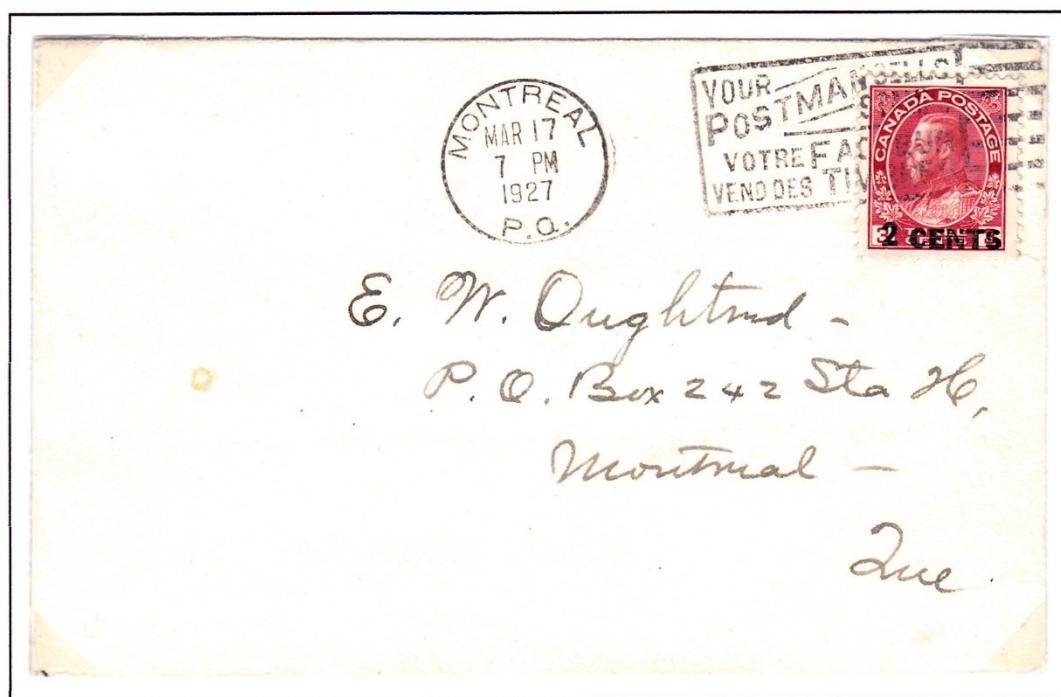 MONTREAL
MAR 17
7 PM
1927
P.Q.
YOUR
POSTMAN SELLS
VOTRE
VEND DES
CANADA POSTAGE
2 CENTS
E. W. Oughtred -
P. O. Box 242 Sta H,
Montreal -
Que